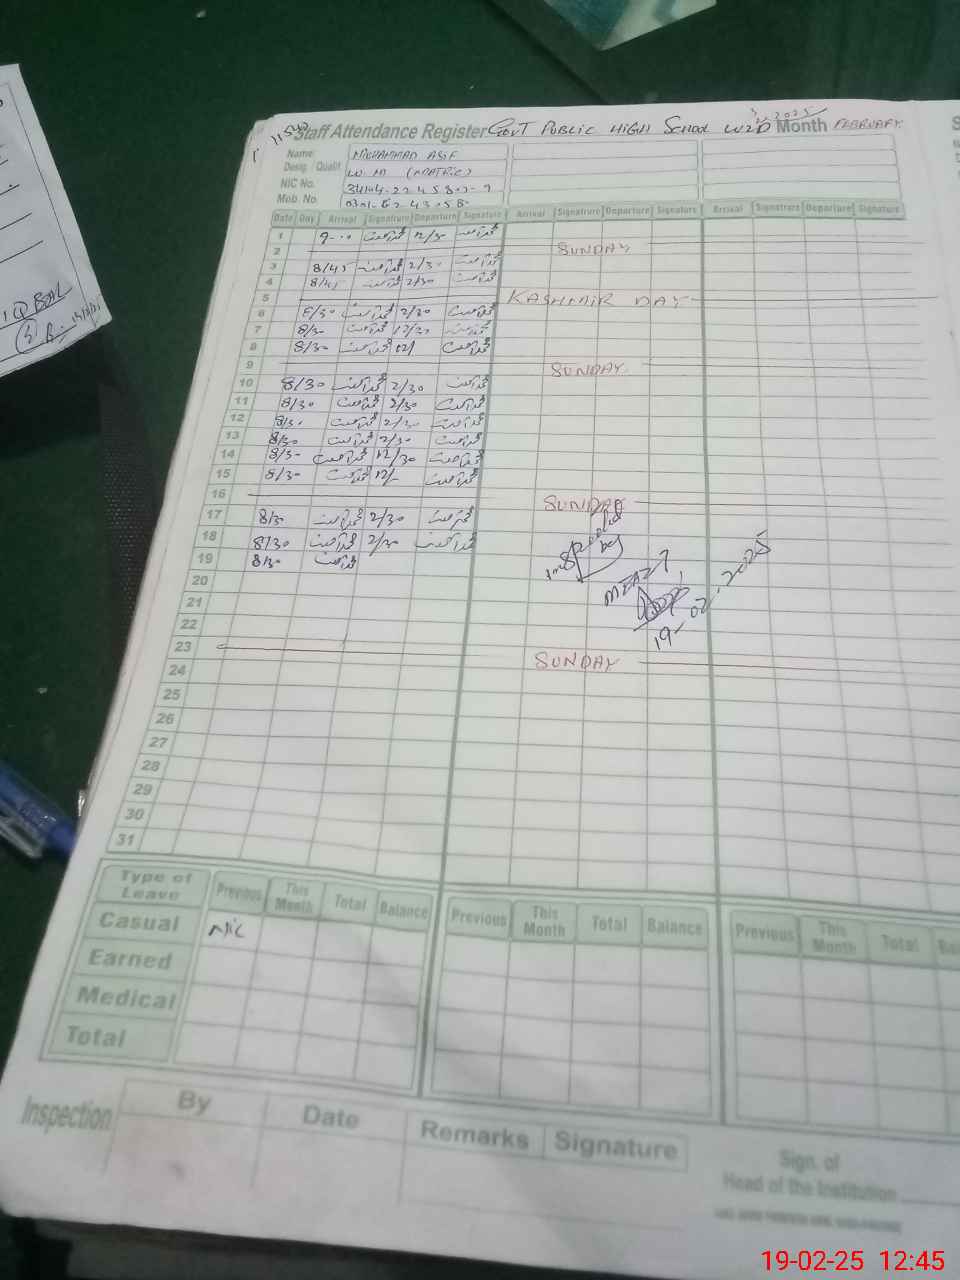 Staff Attendance Register GOVT PUBLIC HIGH SCHOOL WZD Month FEBRUARY
2025
Name MUHAMMAD ASIF
Desig. / Qualif. W.M (MATRIC)
NIC No.
Mob. No.
Date Day Arrival Signature Departure Signature Arrival Signature Departure Signature Arrival Signature Departure Signature
1 محمد آصف 12/30 محمد آصف
2 SUNDAY
3 8/45 محمد آصف 2/30 محمد آصف
4 8/45 محمد آصف 2/30 محمد آصف
5 KASHMIR DAY
6 8/30 محمد آصف 2/30 محمد آصف
7 8/30 محمد آصف 12/30 محمد آصف
8 8/30 محمد آصف 12/ محمد آصف
9 SUNDAY
10 8/30 محمد آصف 2/30 محمد آصف
11 8/30 محمد آصف 2/30 محمد آصف
12 8/30 محمد آصف 2/30 محمد آصف
13 8/30 محمد آصف 2/30 محمد آصف
14 8/30 محمد آصف 12/30 محمد آصف
15 8/30 محمد آصف 12/- محمد آصف
16 SUNDAY
17 8/30 محمد آصف 2/30 محمد آصف
18 8/30 محمد آصف 2/30 محمد آصف
19 8/30 محمد آصف
20
21
22
23 SUNDAY
24
25
26
27
28
29
30
31
Inspected
by
19-02-2025
Type of Leave Previous This Month Total Balance Previous This Month Total Balance Previous This Month Total
Casual Nil
Earned
Medical
Total
Inspection By Date Remarks Signature
Sign. of
Head of the Institution
IQBAL
19-02-25 12:45